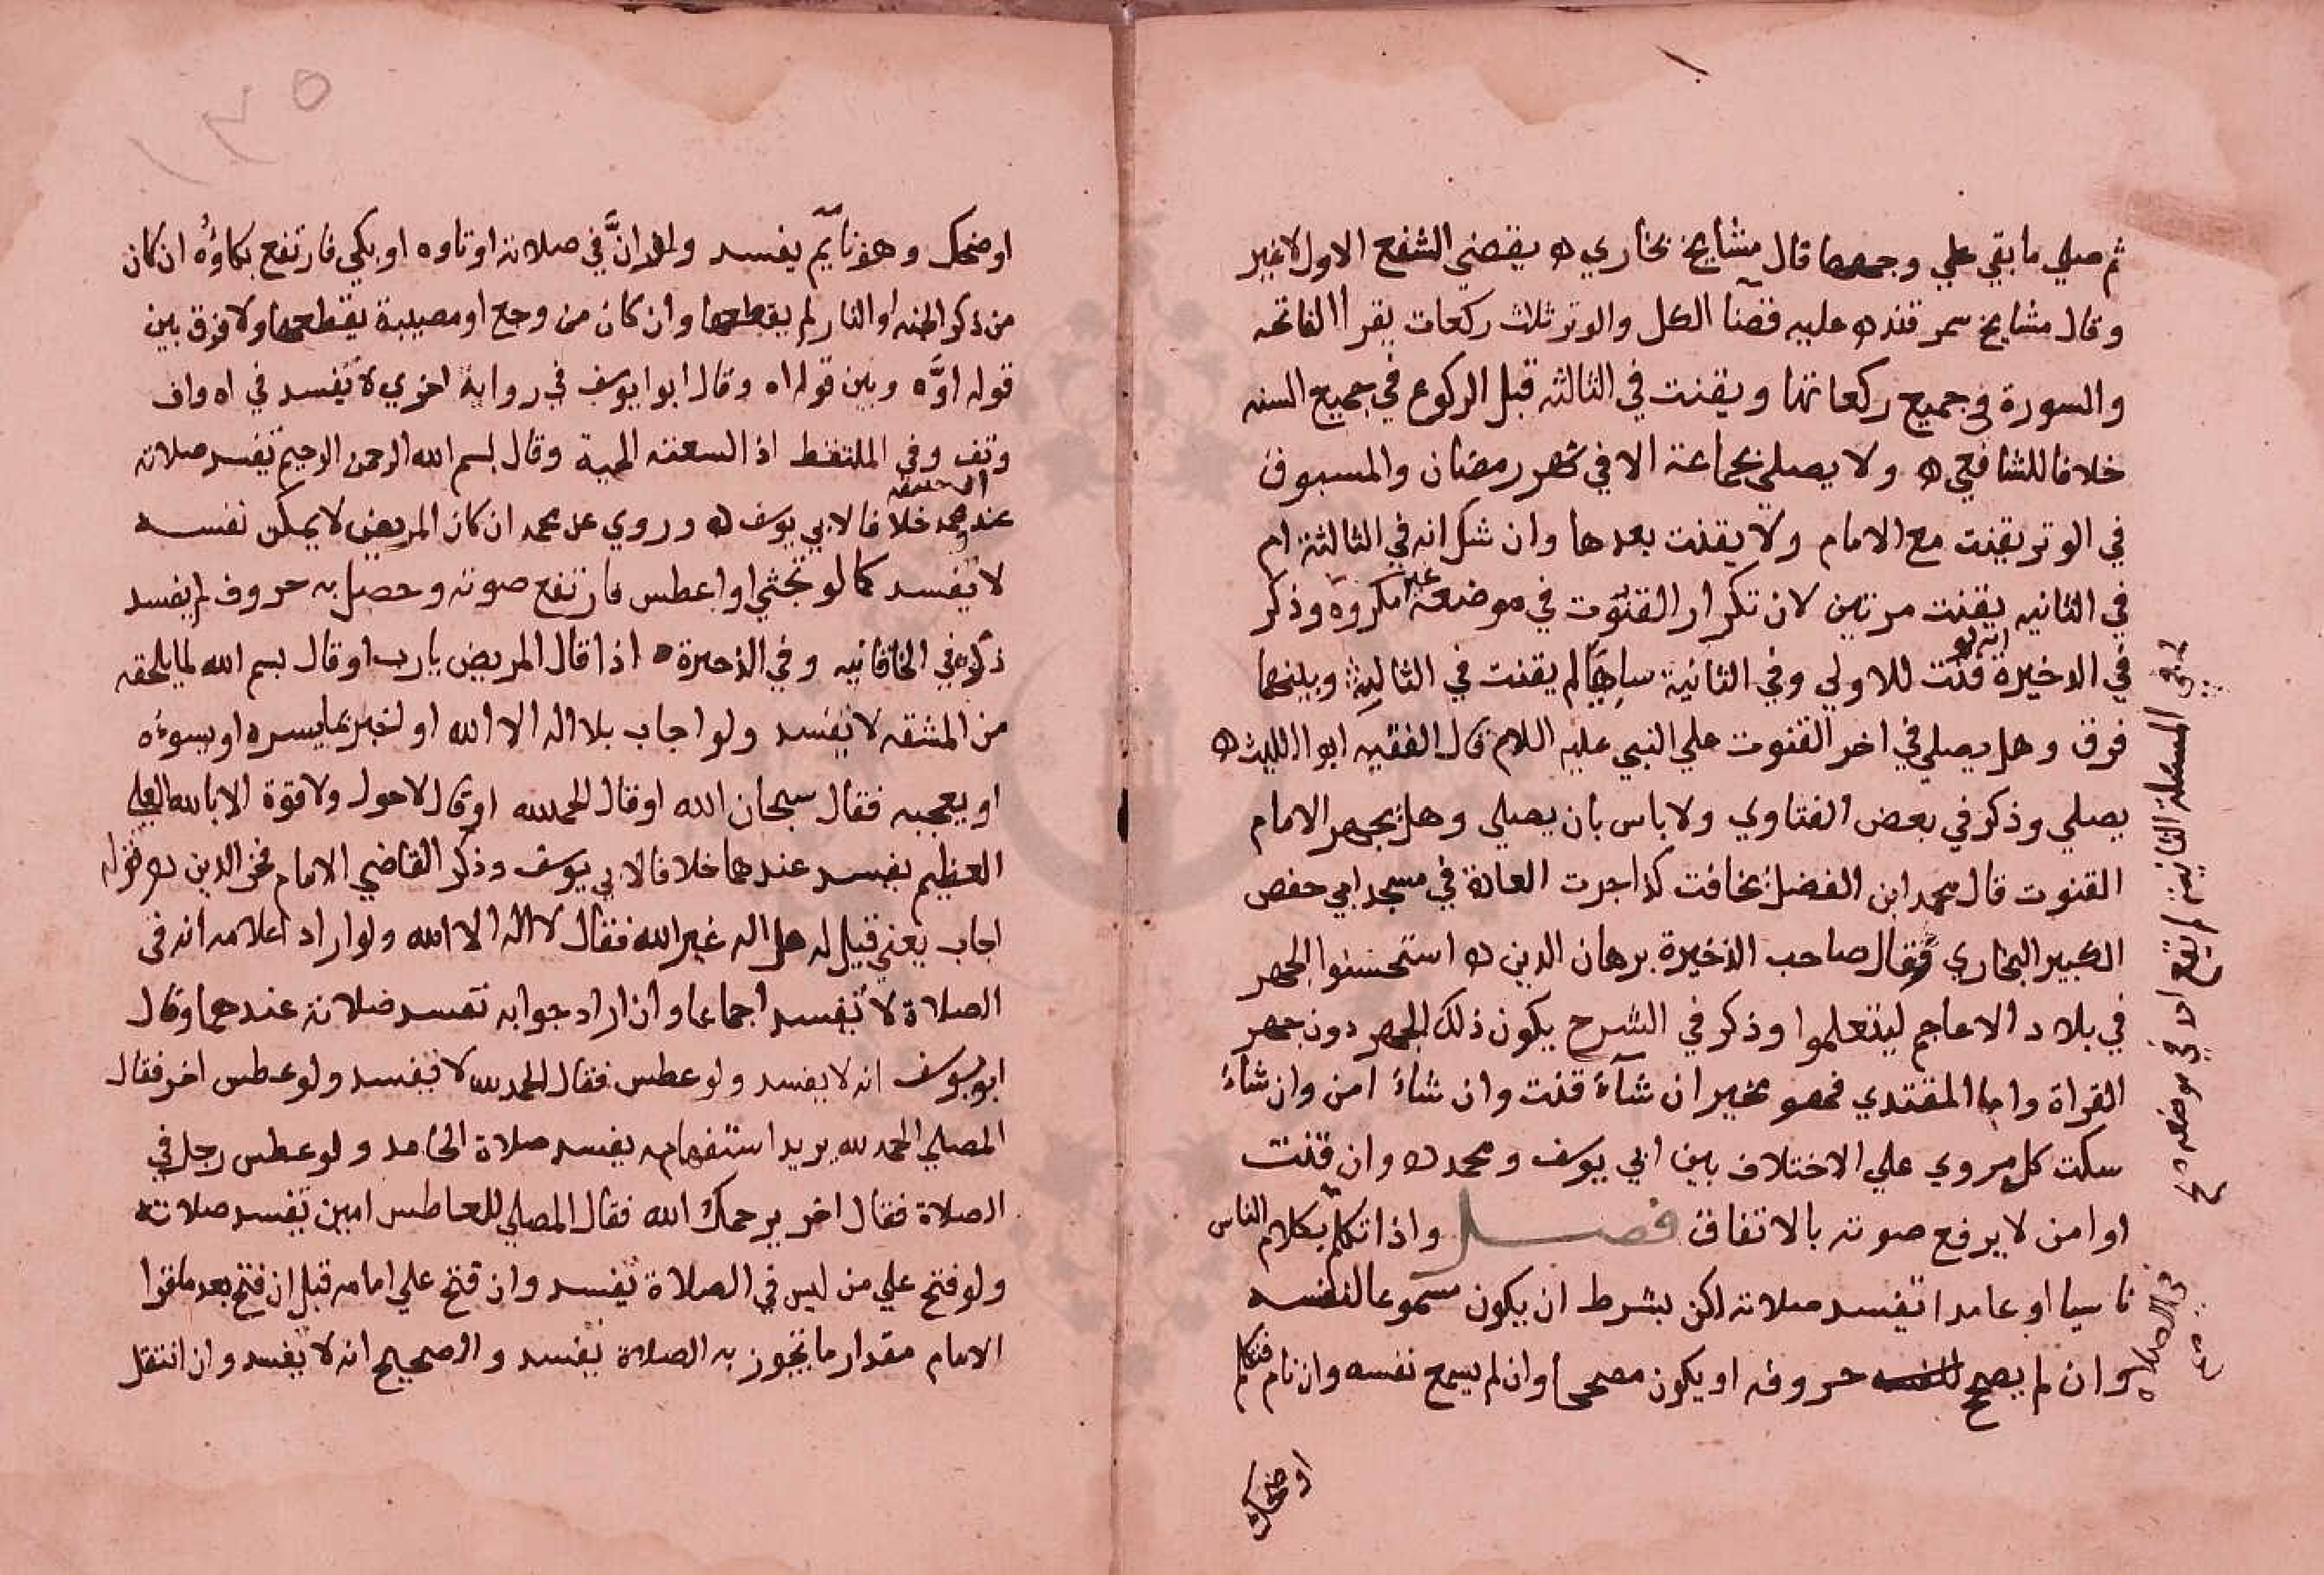 ثم صلي ما بقي علي وجهها قال مشايخ بخاري ره يقضي الشفع الاول لاغير
وقال مشايخ سمرقند ره عليه قضآ الكل والوتر ثلاث ركعات يقرأ الفاتحه
والسورة في جميع ركعاتها ويقنت في الثالثه قبل الركوع في جميع السنه
خلافا للشافعي ره ولا يصلي بجماعة الا في شهر رمضان والمسبوق
في الوتر يقنت مع الامام ولا يقنت بعدها وان شك انه في الثالثة ام
في الثانيه يقنت مرتين لان تكرار القنوت في موضعه غير مكروه وذكر
في الذخيرة انه لو قنت للاولي وفي الثانية ساهيا لم يقنت في الثالثة وبينهما
فرق وهل يصلي في اخر القنوت علي النبي عليه اللام قال الفقيه ابوا الليث ره
يصلي وذكر في بعض الفتاوي ولا باس بان يصلي وهل يجهر الامام
القنوت قال محمد ابن الفضل يخافت كذا جرت العادة في مسجد ابي حفص
الكبير البخاري وقال صاحب الذخيرة برهان الدين ره استحسنوا الجهر
في بلاد الاعاجم ليتعلموا وذكر في الشرح يكون ذلك الجهر دون جهر
القراة واما المقتدي فهو مخير ان شآء قنت وان شاء امن وان شاء
سكت كل مروي علي الاختلاف بين ابي يوسف ومحمد ره وان قنت
او امن لا يرفع صوته بالاتفاق فصل واذا تكلم بكلام الناس
ناسيا او عامدا تفسد صلاته لكن بشرط ان يكون مسموعا لنفسه
وان لم يصح حروفه او يكون مصححا وان لم يسمع نفسه وان نام فتكلم
او ضحك
لان المسئلة الثانية لم تقع الا في موضعه
في الصلاه
١٣٥
او ضحك وهو نايم يفسد ولو انَّ في صلاته او تاوه او بكي فارتفع بكاؤه ان كان
من ذكر الجنه او النار لم يقطعها وان كان من وجع او مصيبة يقطعها ولا فرق بين
قوله اوَّه وبين قوله اه وقال ابوا يوسف في رواية اخري لا تفسد في اه واف
وتف وفي الملتقط اذ السعته الحية وقال بسم الله الرحمن الرحيم تفسد صلاته
عند محمد خلافا لابي يوسف ره وروي عن محمد ان كان المريض لا يمكن نفسه
لا تفسد كما لو تجشي او اعطس فارتفع صوته وحصل به حروف لم يفسد
ذكره في الخاقانيه وفي الذخيرة اذا قال المريض يا رب او قال بسم الله لما يلحقه
من المشقه لا يفسد ولو اجاب بلا اله الا الله او لخبر بما يسره او يسوءه
او يعجبه فقال سبحان الله او قال الحمدلله او قال لاحول ولا قوة الا بالله العلي
العظيم يفسد عندهما خلافا لابي يوسف وذكر القاضي الامام فخر الدين ره
اجاب يعني قيل له هل اله غير الله فقال لا اله الا الله ولو اراد اعلامه انه في
الصلاة لا تفسد اجماعا وان اراد جوابه تفسد صلاته عندهما وقال
ابو يوسف انه لا يفسد ولو عطس فقال الحمد لله لا تفسد ولو عطس اخر فقال
المصلي الحمد لله يريد استفهامه يفسد صلاة الحامد ولو عطس رجل في
الصلاة فقال اخر يرحمك الله فقال المصلي للعاطس امين تفسد صلاته
ولو فتح علي من ليس في الصلاة تفسد وان فتح علي امامه قبل ان فتح بعد ما قرا
الامام مقدار ما يجوز به الصلاة يفسد والصحيح انه لا يفسد وان انتقل